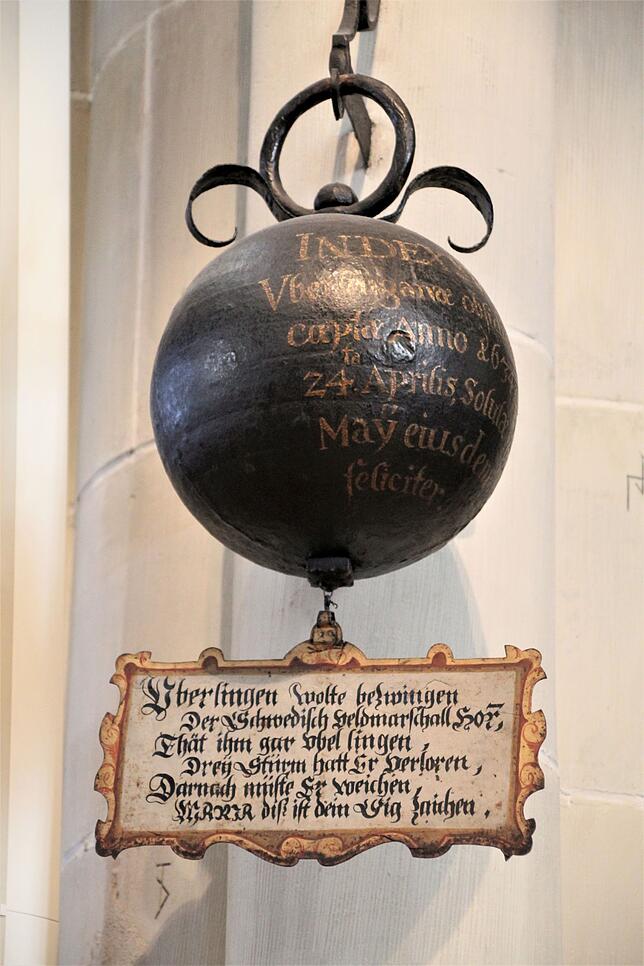 INDEX
Vberlinganæ obsi
cœpta Anno 1634
ta
24 Aprilis, Soluta
May eiusdem
feliciter.
Vberlingen wolte bezwingen
Der Schwedisch Veldmarschall Horn,
Thät ihm gar vbel lingen,
Drey Stürm hatt Er verloren,
Darnach müste Er weichen,
MARIA diß ist dein Sig Zaichen,